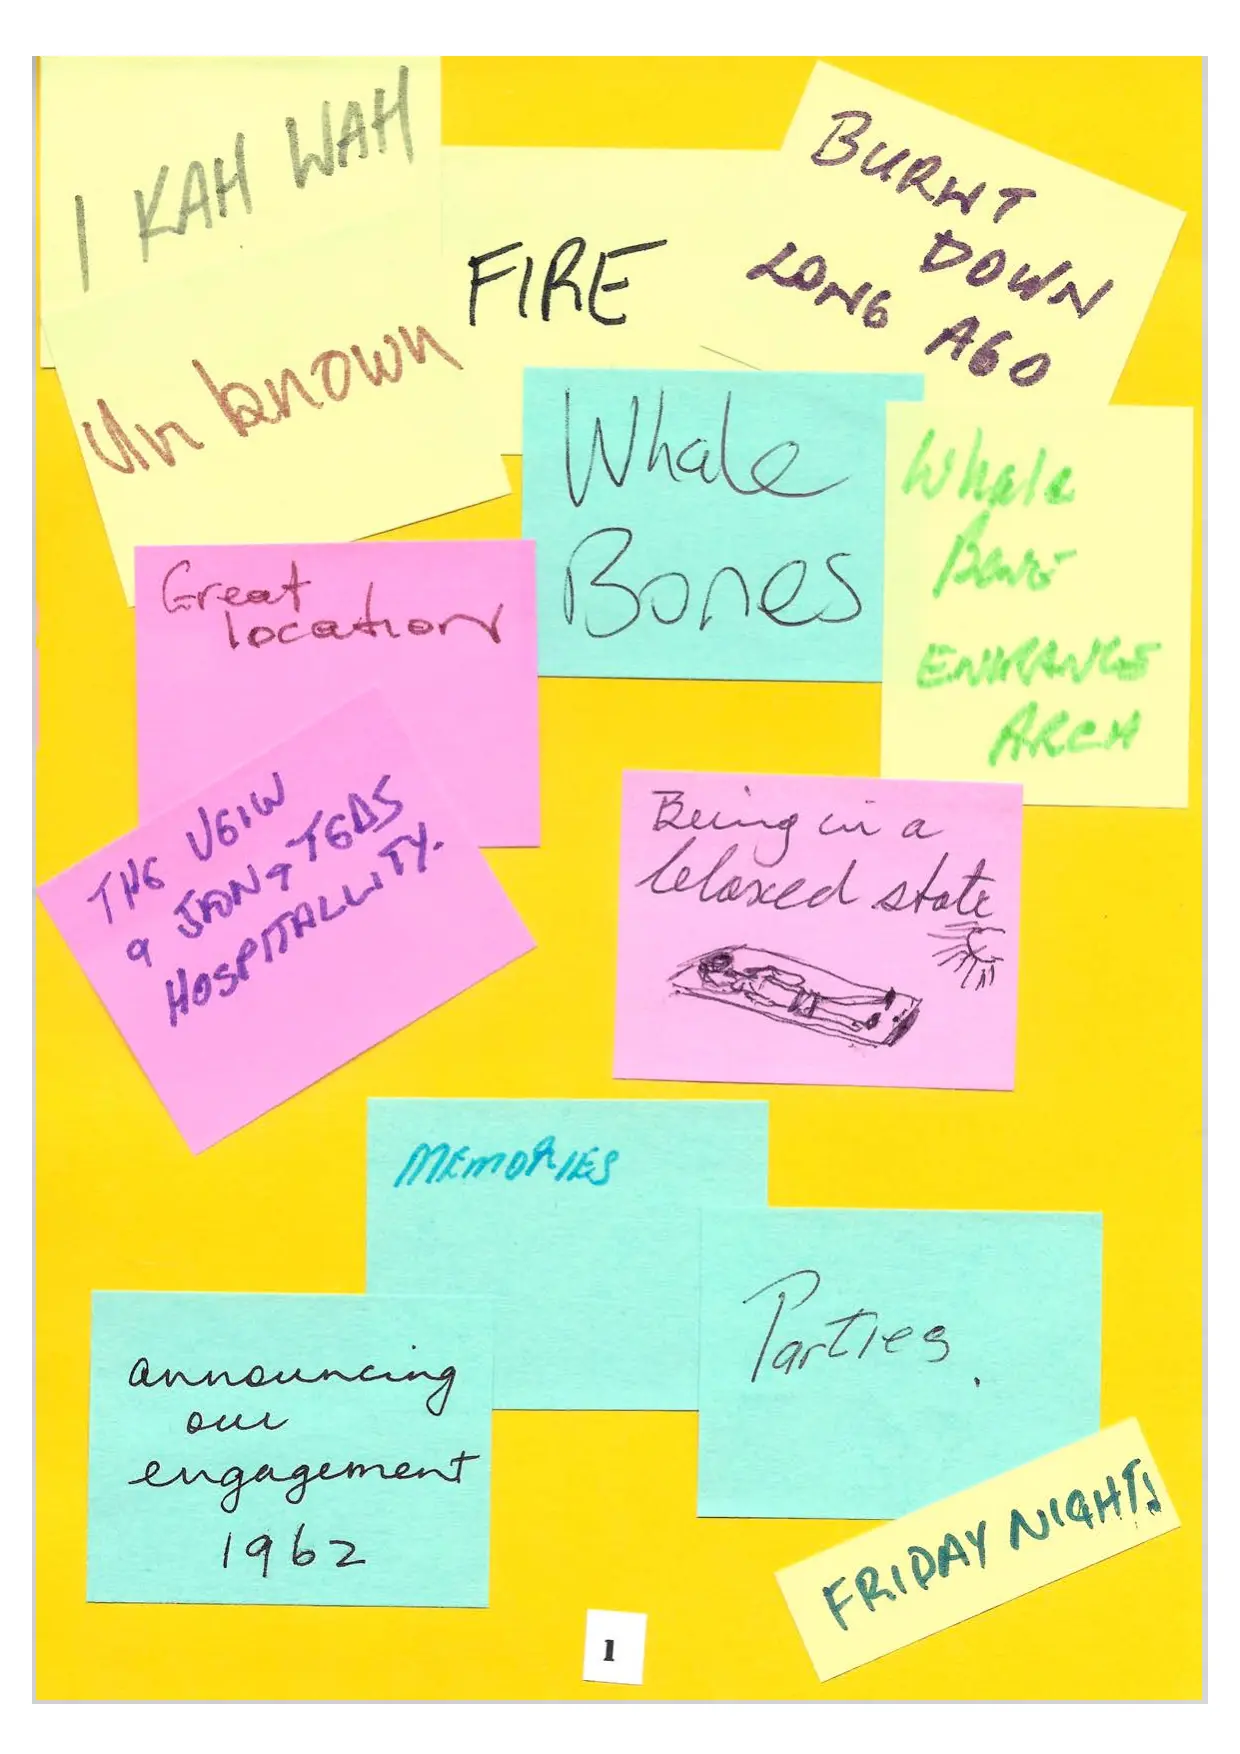 I KAH WAH
FIRE
BURNT
DOWN
LONG AGO
Unknown
Whale
Bones
Whale
Bone
ENTRANCE
ARCH
Great
location
THE VEIW
& JEAN & TEDS
HOSPITALLITY.
Being in a
relaxed state
MEMORIES
Parties.
announcing
our
engagement
1962
FRIDAY NIGHTS
1